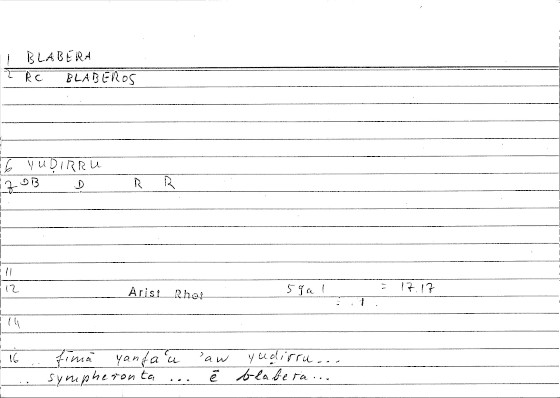 1 BLABERA
2 RC BLABEROS
6 YUḌIRRU
7 DB Ḍ R R
11
12 Arist Rhet 59a1 = 17.17
: .1.
14
16 .. fīmā yanfaʿu ʾaw yuḍirru...
.. sympheronta ... ē blabera...